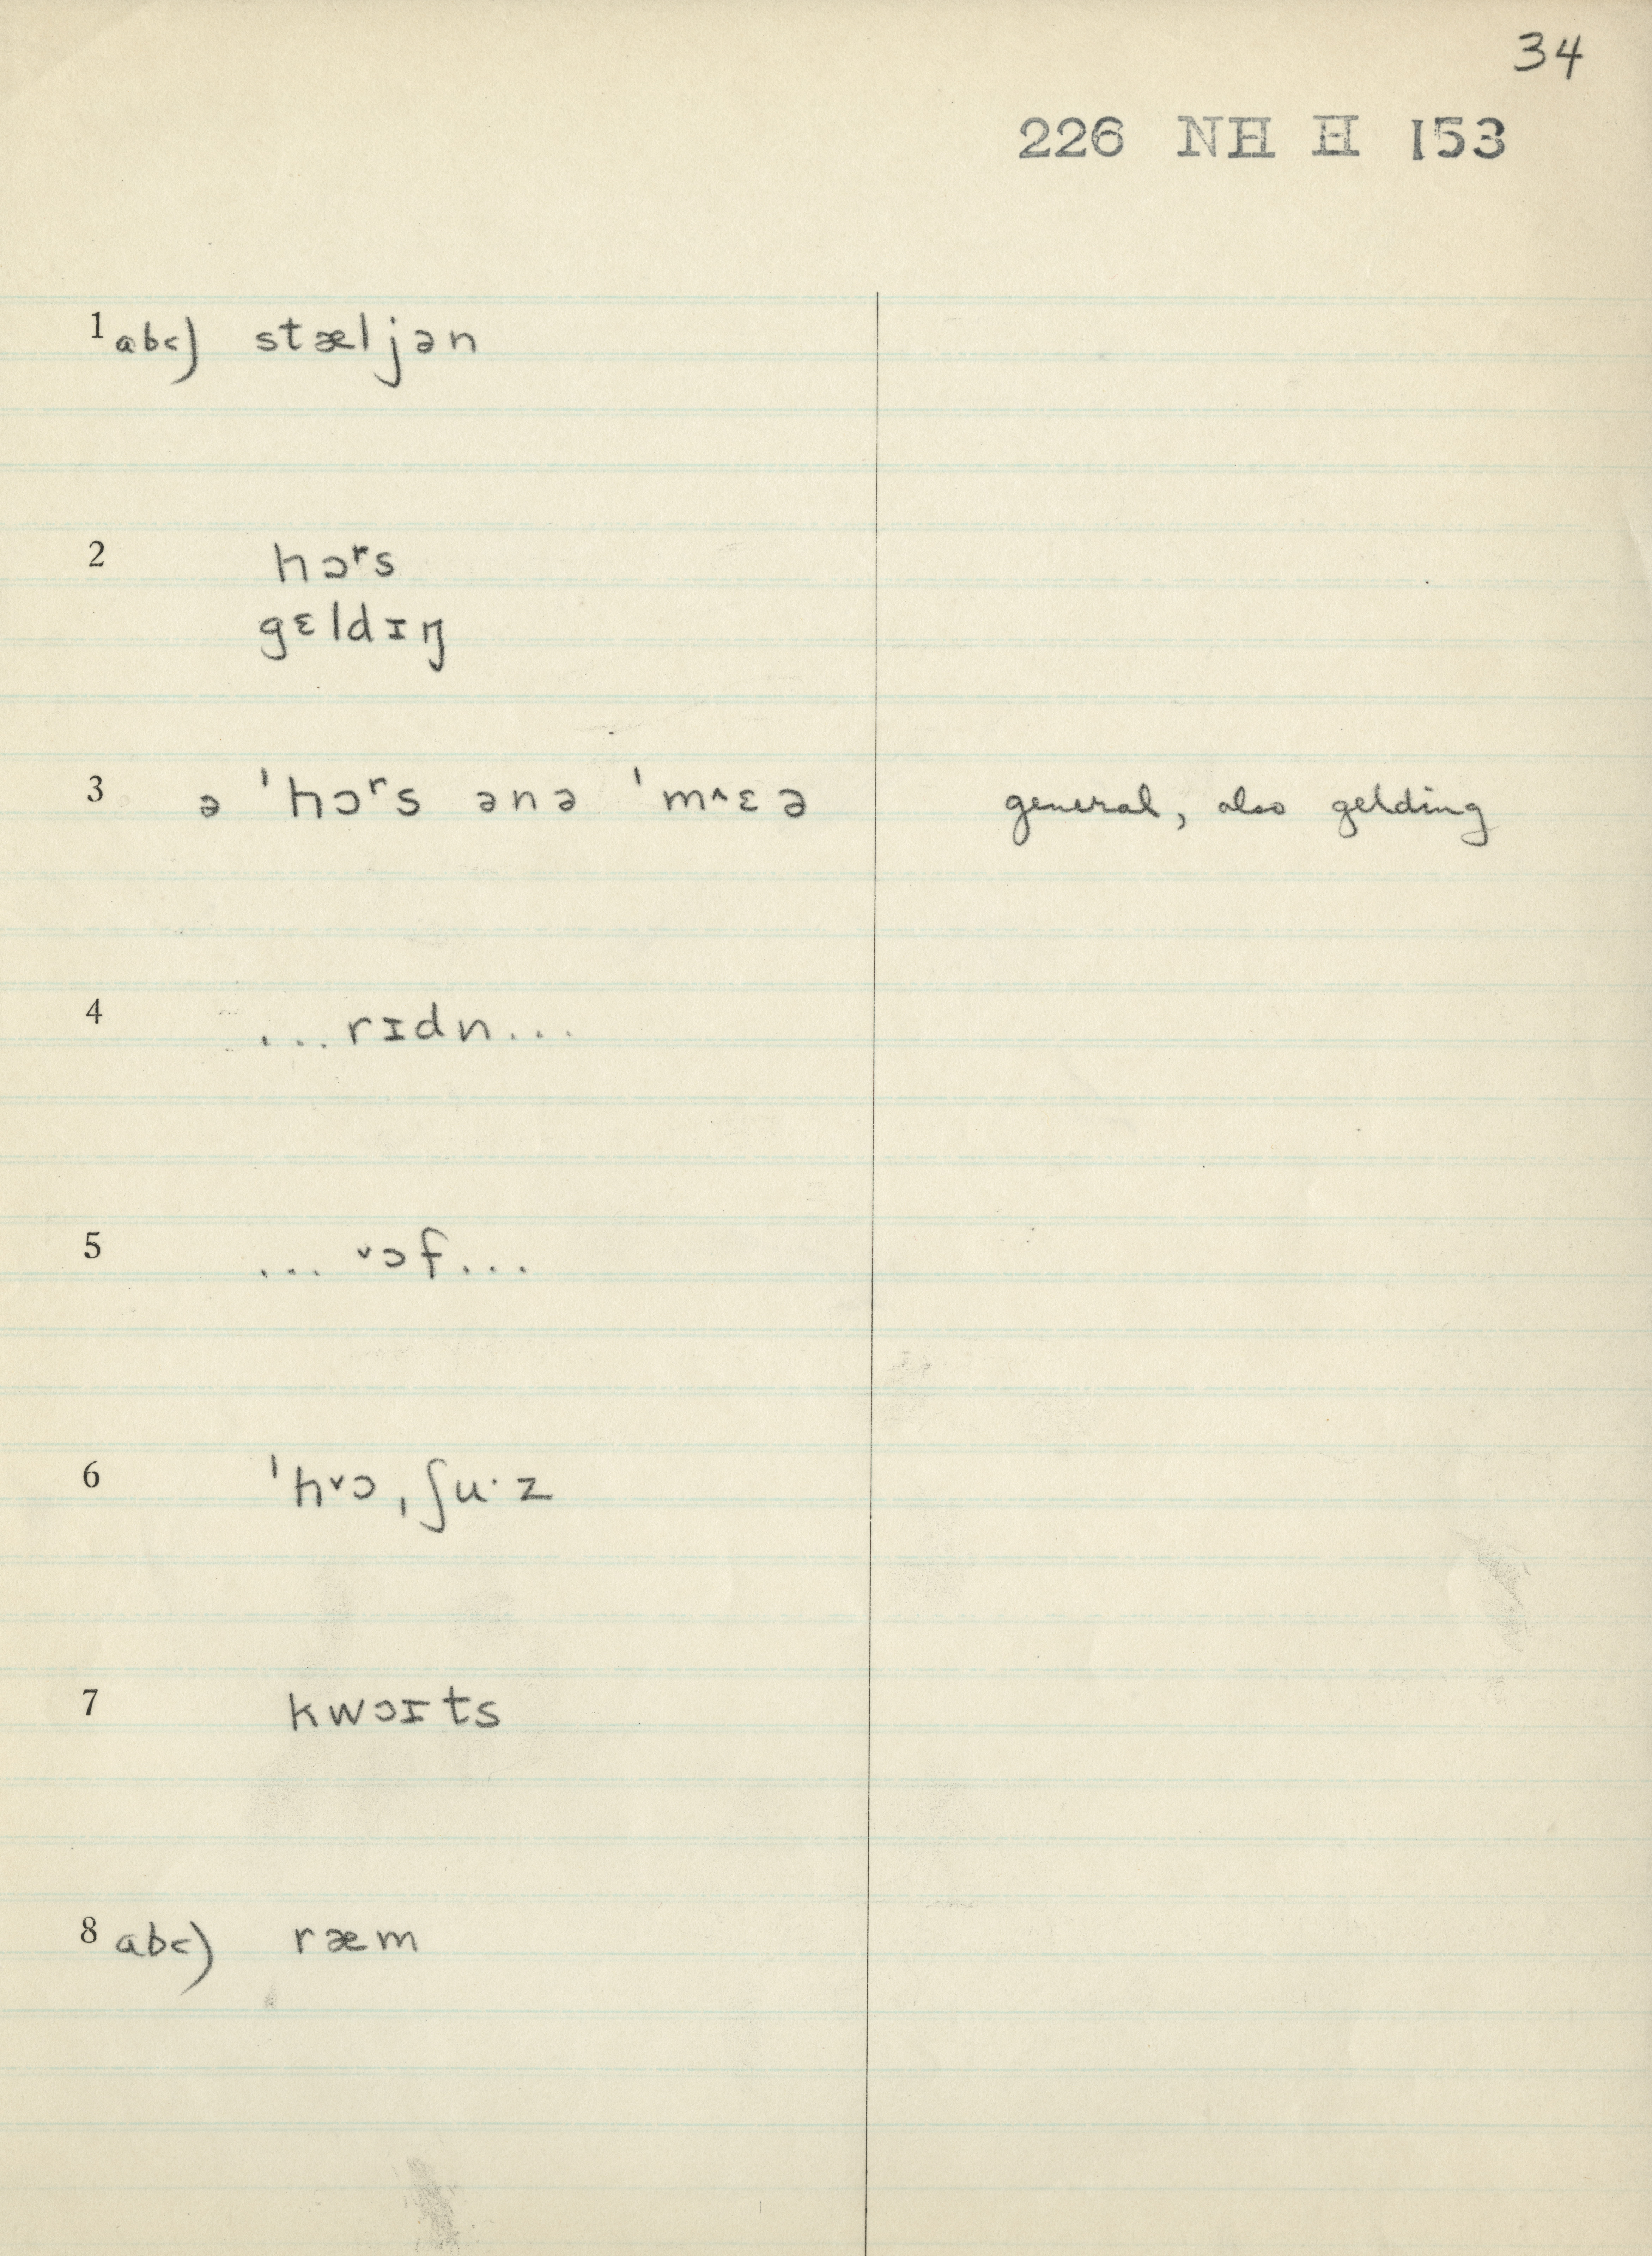 34
226 NH H 153
1 abc) stæljən
2 hɔʳs
gɛldɪŋ
3 ə ˈhɔʳs ənə ˈm^ɛə general, also gelding
4 ...rɪdn...
5 ... ˅ɔf...
6 ˈh˅ɔˌʃu·z
7 kwɔɪts
8 abc) ræm